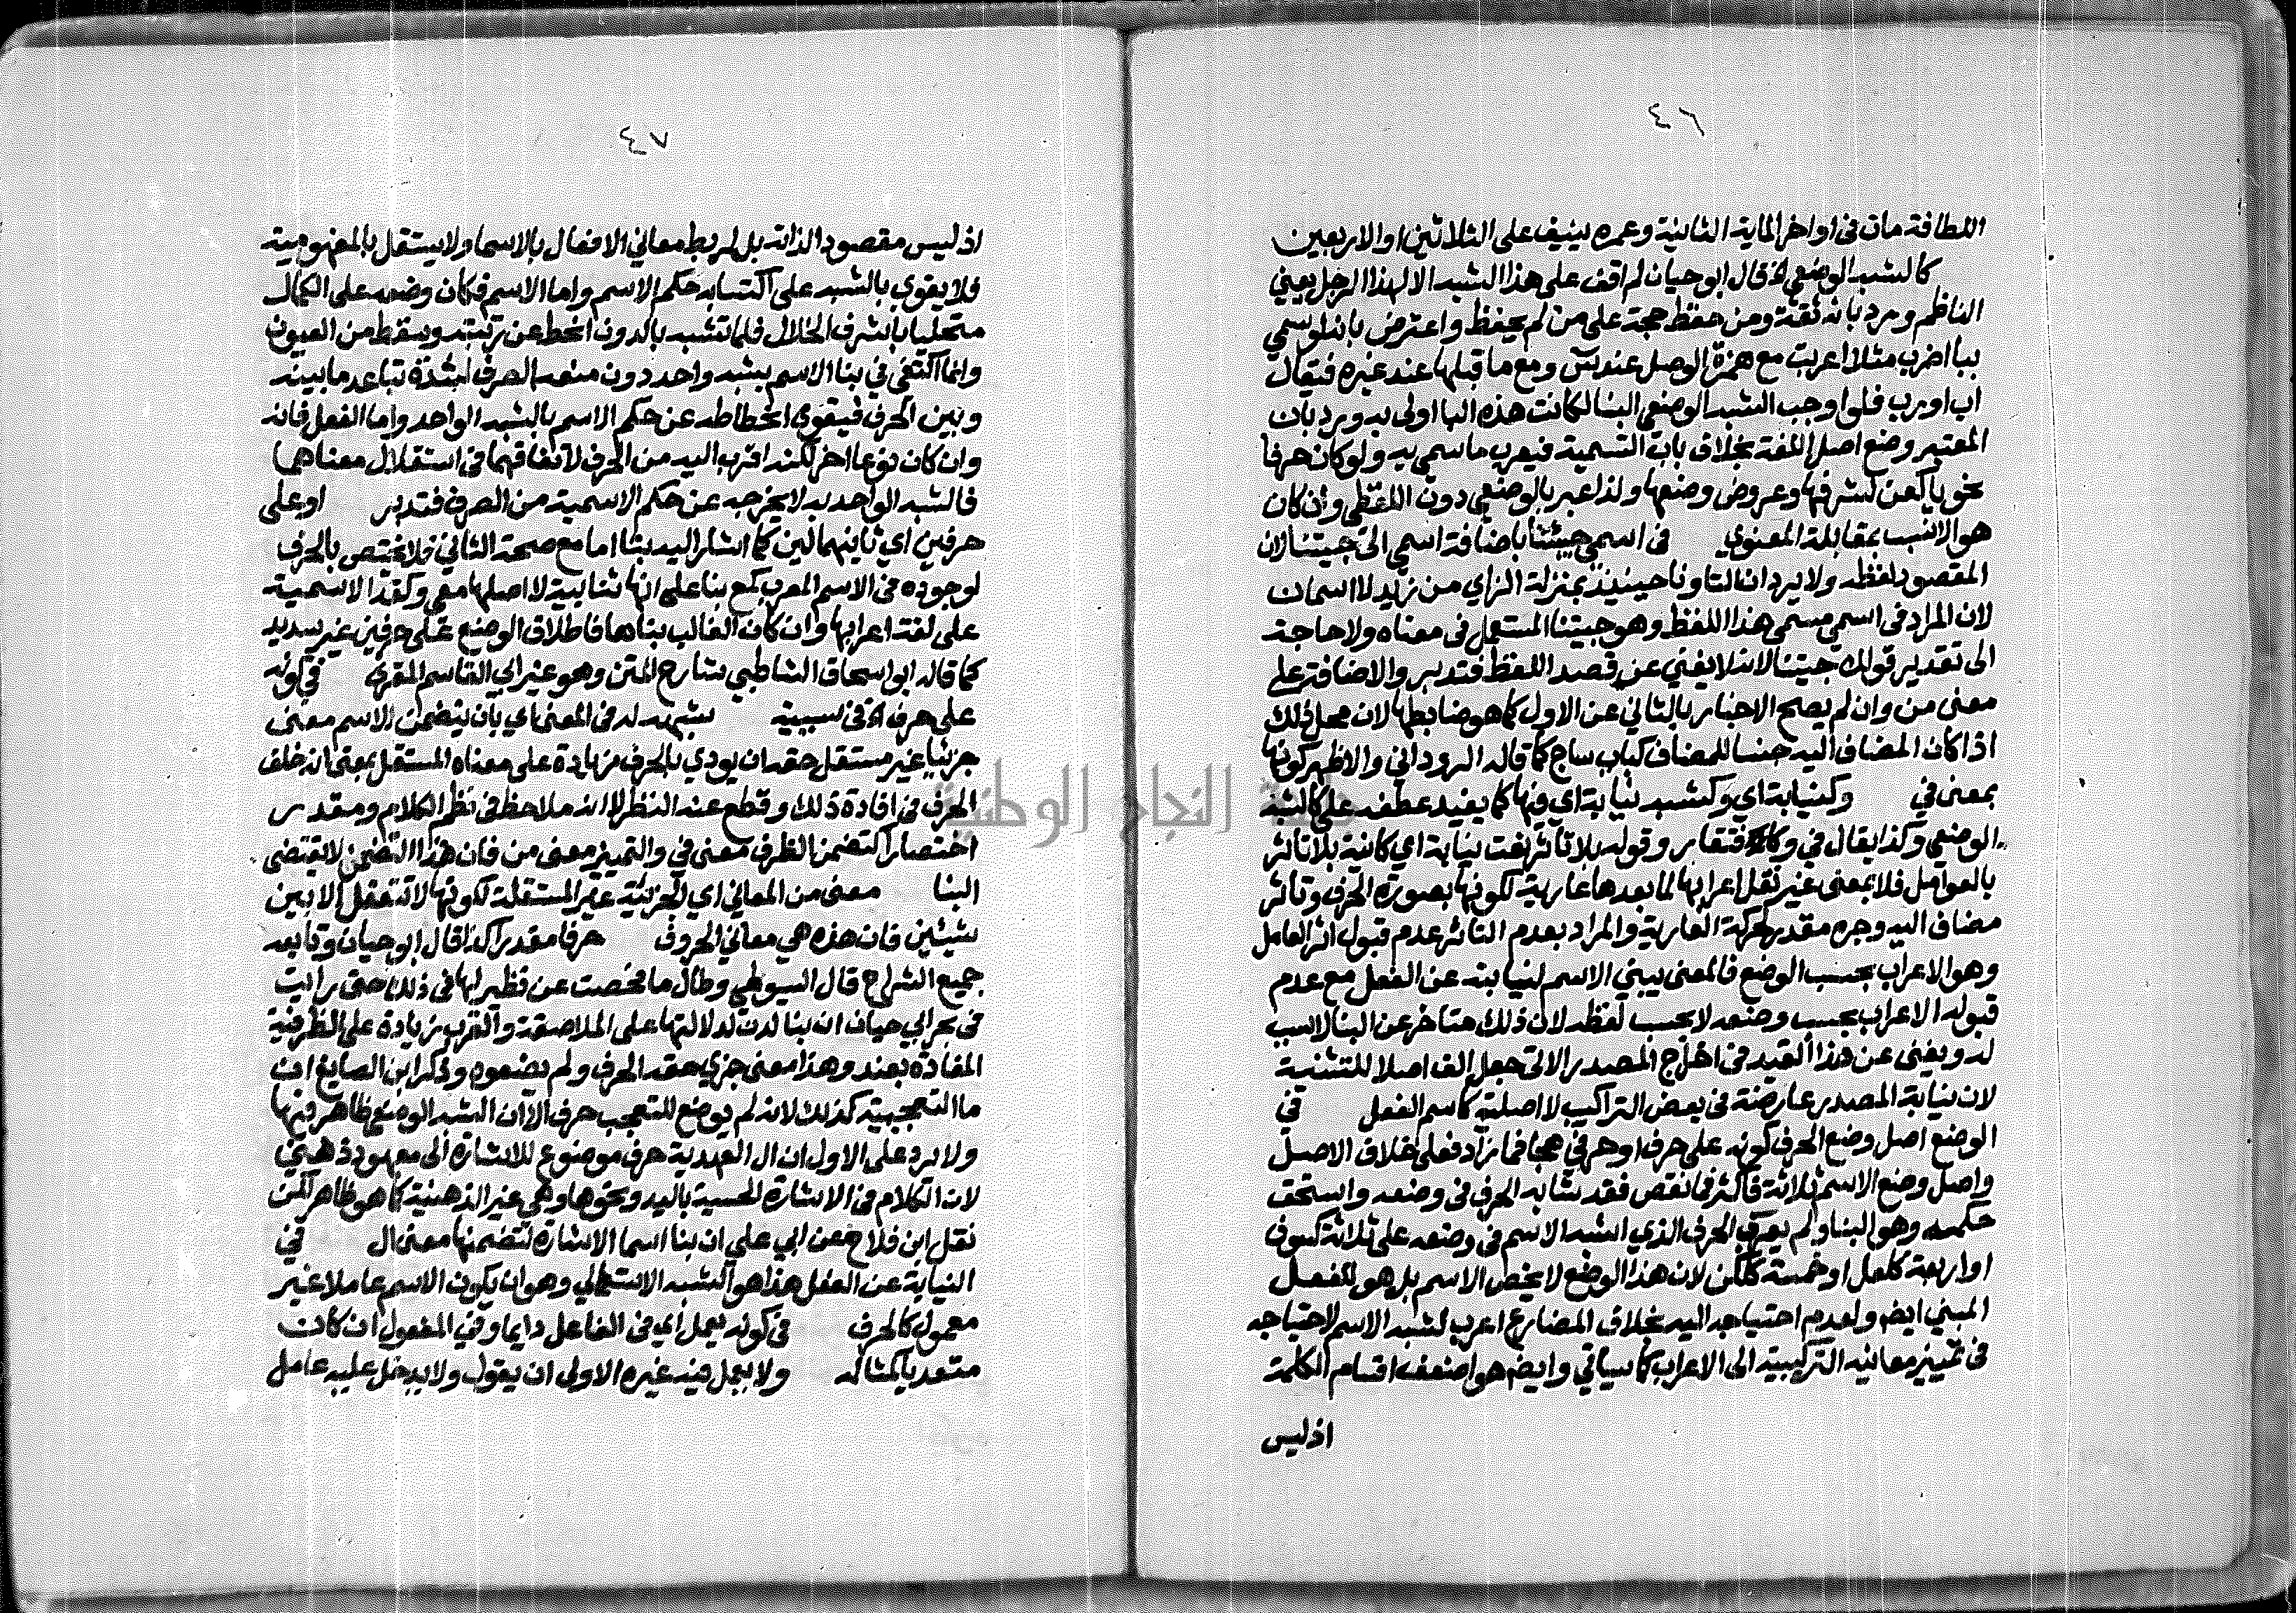 ٤٦
اللطافة مات فى اواخر الماية الثانية وعمره ينيف على الثلاثين او الاربعين
كالشبه الوضعي الخ قال ابو حيان لم اقف على هذا الشبه الا لهذا الرجل يعني
الناظم ورد بانه ثقة ومن حفظ حجة على من لم يحفظ واعترض بانه لو سمي
ببا اضرب مثلا اعربت مع همزة الوصل عند س ومع ما قبلها عند غيره فيقال
اب او رب فلو اوجب الشبه الوضعي البنا لكانت هذه البا اولى به ورد بان
المعتبر وضع اصل اللغة بخلاف باب التسمية فيعرب ما سمي به ولو كان حرفا
نحو يا كعن لشرفها وعروض وضعها ولذا عبر بالوضعي دون اللفظي وان كان
هو الانسب بمقابلة المعنوي فى اسمي جيتنا باضافة اسمي الى جيتنا لان
المقصود لفظه ولا يرد ان التا ونا حينيذ بمنزلة الزاي من زيد لا اسمان
لان المراد فى اسمي مسمى هذا اللفظ وهو جيتنا المستعمل فى معناه ولا حاجة
الى تقدير قولك جيتنا لانه لا يغني عن قصد اللفظ فتدبر والاضافة على
معنى من وان لم يصح الاخبار بالثاني عن الاول كما هو ضابطها لان محل ذلك
اذا كان المضاف اليه جنسا للمضاف كباب ساج كما قاله الروداني والاظهر كونها
بمعنى في وكنيابة اي وكشبه نيابة اي فيها كما يفيد عطفه على كالشبه
الوضعي وكذا يقال في وكافتقار وقوله بلا تاثر نعت نيابة اي كائنة بلا تاثر
بالعوامل فلا بمعنى غير نقل اعرابها لما بعدها عارية لكونها بصورة الحرف وتاثر
مضاف اليه وجره مقدر لحركة العارية والمراد بعدم التاثر عدم قبول اثر العامل
وهو الاعراب بحسب الوضع فالمعنى يبني الاسم لنيابته عن الفعل مع عدم
قبوله الاعراب بحسب وضعه لا بحسب لفظه لان ذلك متاخر عن البنا لا سبب
له ويغنى عن هذا القيد فى اخراج المصدر الاتى جعل الف اصلا للتثنية
لان نيابة المصدر عارضة فى بعض التراكيب لا اصلية كاسم الفعل في
الوضع اصل وضع الحرف كونه على حرف او حرفي هجا فما زاد فعلى خلاف الاصل
واصل وضع الاسم ثلاثة فاكثر فما نقص فقد شابه الحرف فى وضعه واستحق
حكمه وهو البنا ولم يعرب الحرف الذي اشبه الاسم فى وضعه على ثلاثة كسوف
او اربعة كلعل او خمسة كلكن لان هذا الوضع لا يخص الاسم بل هو للفعل
المبني ايضه ولعدم احتياجه اليه بخلاف المضارع اعرب لشبه الاسم لاحتياجه
فى تمييز معانيه التركيبية الى الاعراب كما سياتي وايضه هو اضعف اقسام الكلمة
اذ ليس
٤٧
اذ ليس مقصود الذاته بل لربط معاني الافعال بالاسما ولا يستقل بالمفهومية
فلا يقوي بالشبه على اكتسابه حكم الاسم واما الاسم فكان وضعه على الكمال
متحليا باشرف الخلال فلما تشبه بالدون انحط عن رتبته وسقط من العيون
وانما اكتفي في بنا الاسم بشبه واحد دون منعه الصرف لشدة تباعد ما بينه
وبين الحرف فيقوى انحطاطه عن حكم الاسم بالشبه الواحد واما الفعل فانه
وان كان نوعا اخر لكنه اقرب اليه من الحرف لاتفاقهما فى استقلال معناهما
فالشبه الواحد به لا يخرجه عن حكم الاسمية من الصرف فتدبر او على
حرفين اي ثانيهما لين كما اشار اليه بنا اما مع صحة الثاني فلا يختص بالحرف
لوجوده فى الاسم المعرب كمع بنا على انها ثنايية لا اصلها معي وكقد الاسمية
على لغة اعرابها وان كان الغالب بناها فاطلاق الوضع على حرفين غير سديد
كما قاله ابو اسحاق الشاطبي شارح المتن وهو غير ابي القاسم المقري في كونه
على حرف الخ فى سببية شبهه له فى المعنى اي بان يتضمن الاسم معنى
جزئيا غير مستقل حقه ان يودي بالحرف زيادة على معناه المستقل بمعنى انه خلف
الحرف فى افادة ذلك وقطع عنه النظر لا انه ملاحظ فى نظم الكلام ومقدر
اختصارا كتضمن الظرف معنى في والتمييز معنى من فان هذا التضمن لا يقتضى
البنا معنى من المعاني اي الجزئية غير المستقلة لكونها لا تتعقل الا بين
شيئين فان هذه هي معاني الحروف حرفا مقدرا كذا قال ابو حيان وتابعه
جميع الشراح قال السيوطي وطال ما فحصت عن نظير لها فى ذلك حتى رايت
فى بحر ابي حيان ان بنا لدن لدلالتها على الملاصقة والقرب زيادة على الظرفية
المفادة بعند وهذا معنى جزي حقه الحرف ولم يضعوه وذكر ابن الصايغ ان
ما التعجبية كذلك لانه لم يوضع للتعجب حرف الا ان الشبه الوضعي ظاهر فيها
ولا يرد على الاول ان ال العهدية حرف موضوع للاشارة الى معهود ذهني
لان الكلام فى الاشارة الحسية باليد ونحوها وهي غير الذهنية كما هو ظاهر لكن
نقل ابن فلاح عن ابي علي ان بنا اسما الاشارة لتضمنها معنى ال في
النيابة عن الفعل هذا هو الشبه الاستعمالي وهو ان يكون الاسم عاملا غير
معمول كالحرف فى كونه يعمل اي فى الفاعل دايما وفي المفعول ان كانت
متعديا كمثاله ولا يعمل فيه غيره الاولى ان يقول ولا يدخل عليه عامل
جامعة النجاح الوطنية